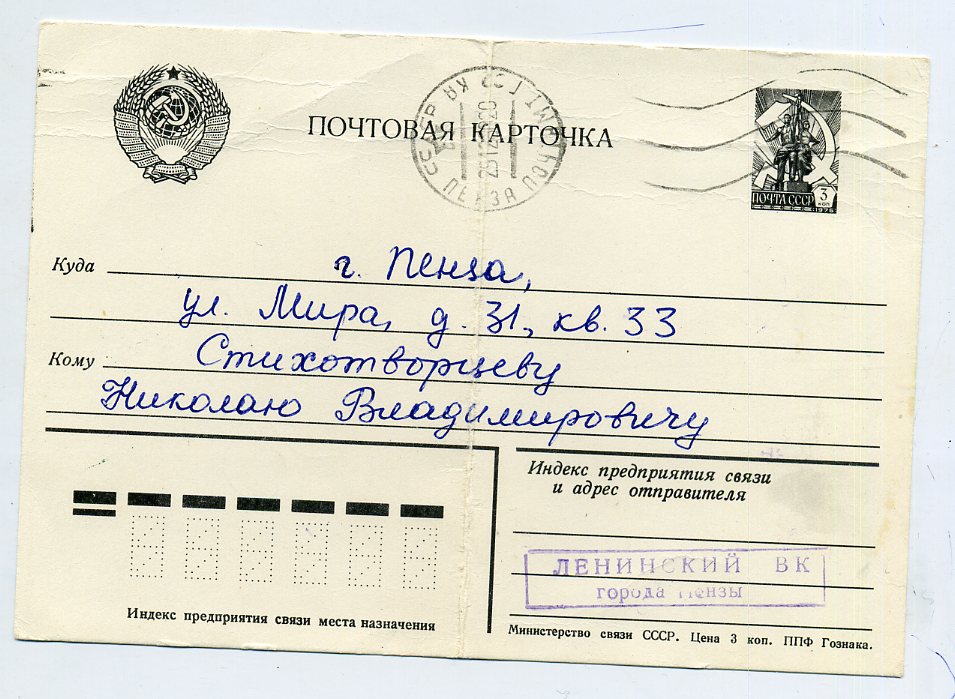 ПОЧТОВАЯ КАРТОЧКА
СССР
ПЕНЗА ПОЧТАМТ
ПОЧТА СССР
3
коп
1976
Куда г. Пенза,
ул. Мира, д. 31, кв. 33
Кому Стихотворцеву
Николаю Владимировичу
Индекс предприятия связи
и адрес отправителя
ЛЕНИНСКИЙ ВК
города Пензы
Индекс предприятия связи места назначения
Министерство связи СССР. Цена 3 коп. ППФ Гознака.